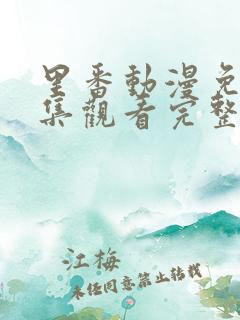 里番動漫免
集觀看完整
江梅
未经同意禁止转载